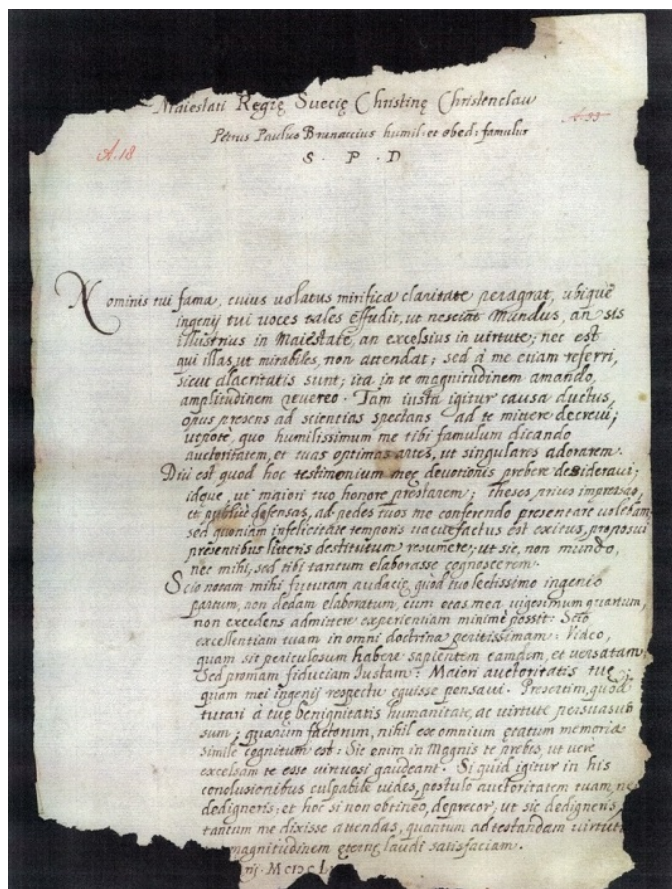 Maiestati Regię Suecię Christinę Christenclau
Petrus Paulus Brunaccius humil: et obed: famulus
A. 33
A. 18
S . P . D
Nominis tui fama, cuius uolatus mirifica claritate peragrat, ubique
ingenij tui uoces tales effudit, ut nesciat Mundus, an sis
illustrius in Maiestate, an excelsius in uirtute; nec est
qui illas, ut mirabiles, non attendat; sed à me etiam referri,
sicut alacritatis sunt; ita in te magnitudinem amando,
amplitudinem reuereo. Tam iusta igitur causa ductus,
opus presens ad scientias spectans ad te mittere decreui;
utpotè, quo humilissimum me tibi famulum dicando
auctoritatem, et tuas optimas artes, ut singulares adorarem.
Diù est quod hoc testimonium meę deuotionis prebere desideraui;
idque, ut maiori tuo honore prestarem; theses, prius impressas,
et publicè defensas, ad pedes tuos me conferendo presentare uolebam;
sed quoniam infelicitate temporis uacuefactus est exitus, proposui
presentibus litteris destitutum resumere; ut sic, non mundo,
nec mihi, sed tibi tantum elaborasse cognoscerem.
Scio notam mihi futuram audacię, quod tuo lectissimo ingenio
partum, non dedam elaboratum, cum etas mea uigesimum quartum,
non excedens admittere experientiam minimè possit: Scio
excellentiam tuam in omni doctrina peritissimam: Video,
quam sit periculosum habere sapientem eamdem, et uersatam:
Sed promam fiduciam Iustam: Maiori auctoritatis tuę
quam mei ingenij respectu eguisse pensaui. Presertim, quod
tutari à tuę benignitatis humanitate, ac uirtute persuasus
sum; quarum factorum, nihil ex omnium ętatum memoria
simile cognitum est: Sic enim in Magnis te prebes, ut uere
excelsam te esse uirtuosi gaudeant. Si quid igitur in his
conclusionibus culpabile uides, postulo auctoritatem tuam, ne
dedigneris: et hoc si non obtineo, deprecor, ut sic dedignens
tantum me dixisse attendas, quantum ad testandam uirtut
magnitudinem ęternę laudi satisfaciam.
nij. MDCL